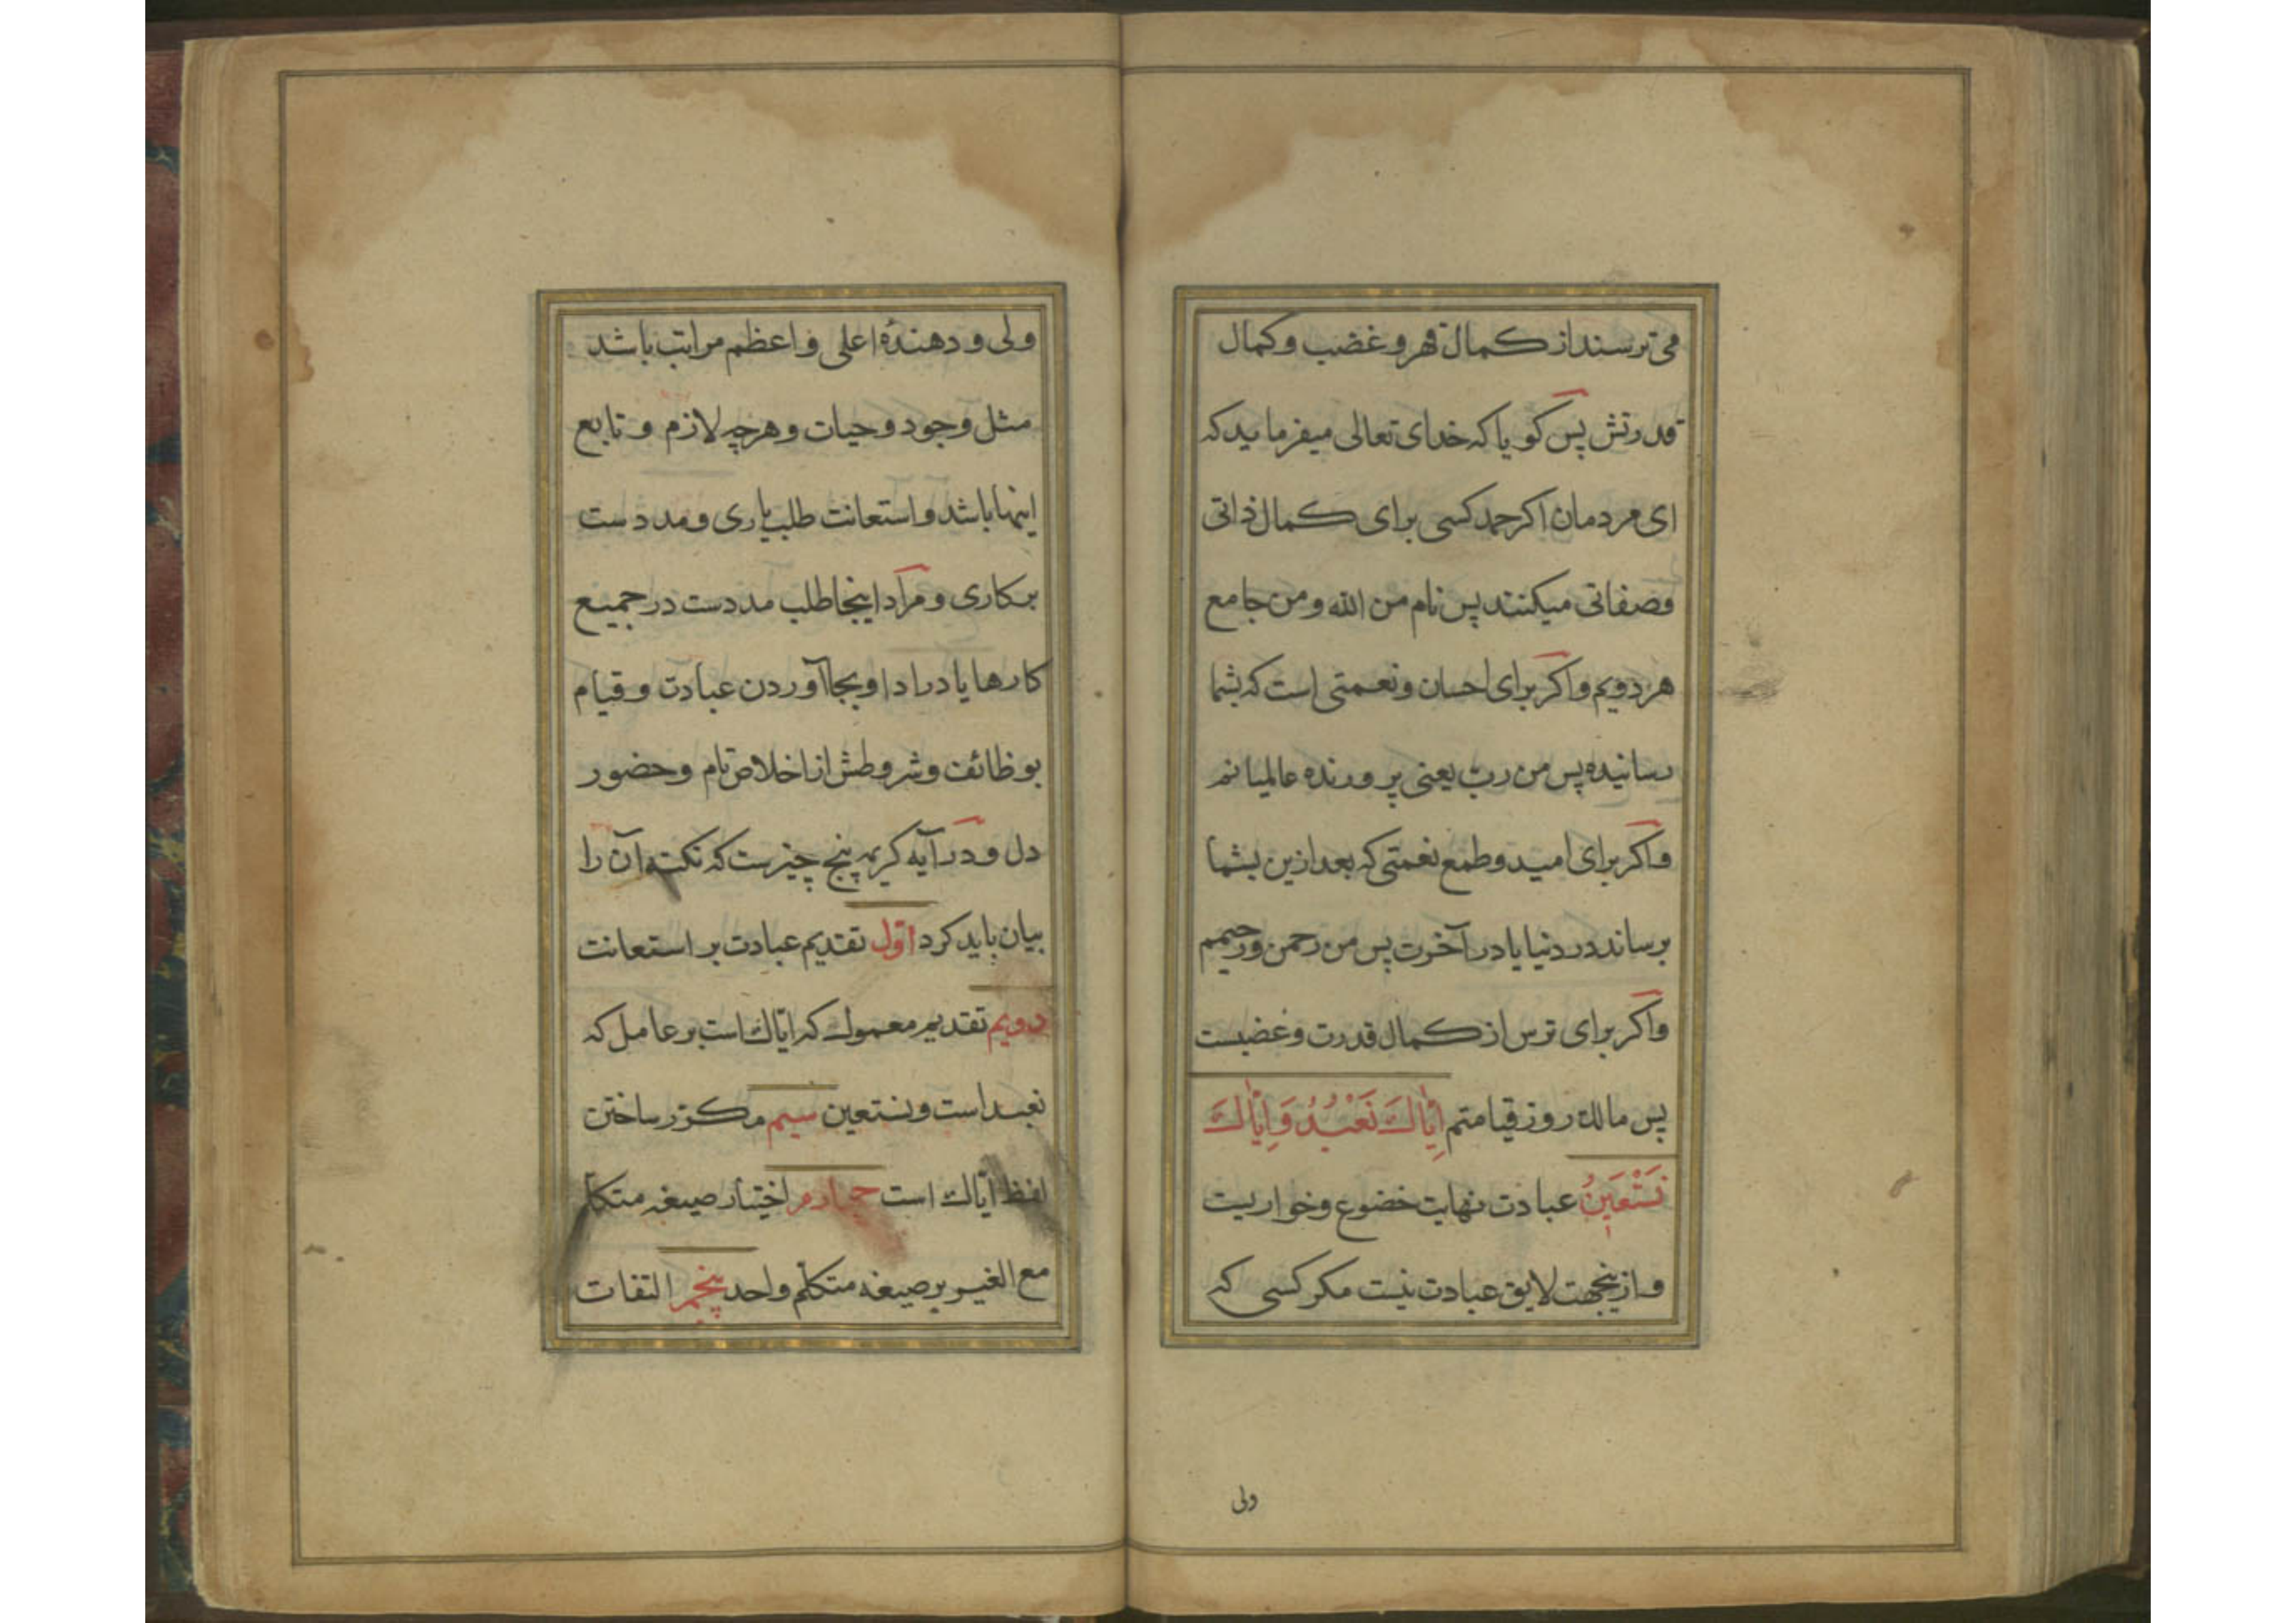 می ترسند از کمال قهر و غضب و کمال
قدرتش پس کویا که خدای تعالی میفرماید که
ای مردمان اکر حمد کسی برای کمال ذاتی
وصفاتی میکنند پس نام من الله و من جامع
هر دویم واکر برای احسان و نعمتی است که بشما
رسانیده پس من رب یعنی پرورنده عالمیانم
واکر برای امید و طمع نعمتی که بعد ازین بشما
برساند در دنیا یا در آخرت پس من رحمن ورحیمم
واکر برای ترس از کمال قدرت و غضبست
پس مالک روز قیامتم اِیَّاكَ نَعْبُدُ وَاِیَّاكَ
نَسْتَعِینُ عبادت نهایت خضوع و خواریست
و ازینجهت لایق عبادت نیست مکر کسی که
ولی
ولی و دهندهٔ اعلی و اعظم مراتب باشد
مثل وجود و حیات و هرچه لازم و تابع
اینها باشد و استعانت طلب یاری و مددست
برکاری و مراد اینجا طلب مددست در جمیع
کارها یا در ادا و بجا آوردن عبادت و قیام
بوظائف و شروطش از اخلاص تام و حضور
دل و در آیه کریمه پنج چیزست که نکته آن را
بیان باید کرد اوّل تقدیم عبادت بر استعانت
دویم تقدیم معمول که ایّاك است بر عامل که
نعبد است و نستعین سیم مکرّر ساختن
لفظ ایّاك است چهارم اختیار صیغه متکلم
مع الغیر بر صیغه متکلّم واحد پنجم التفات